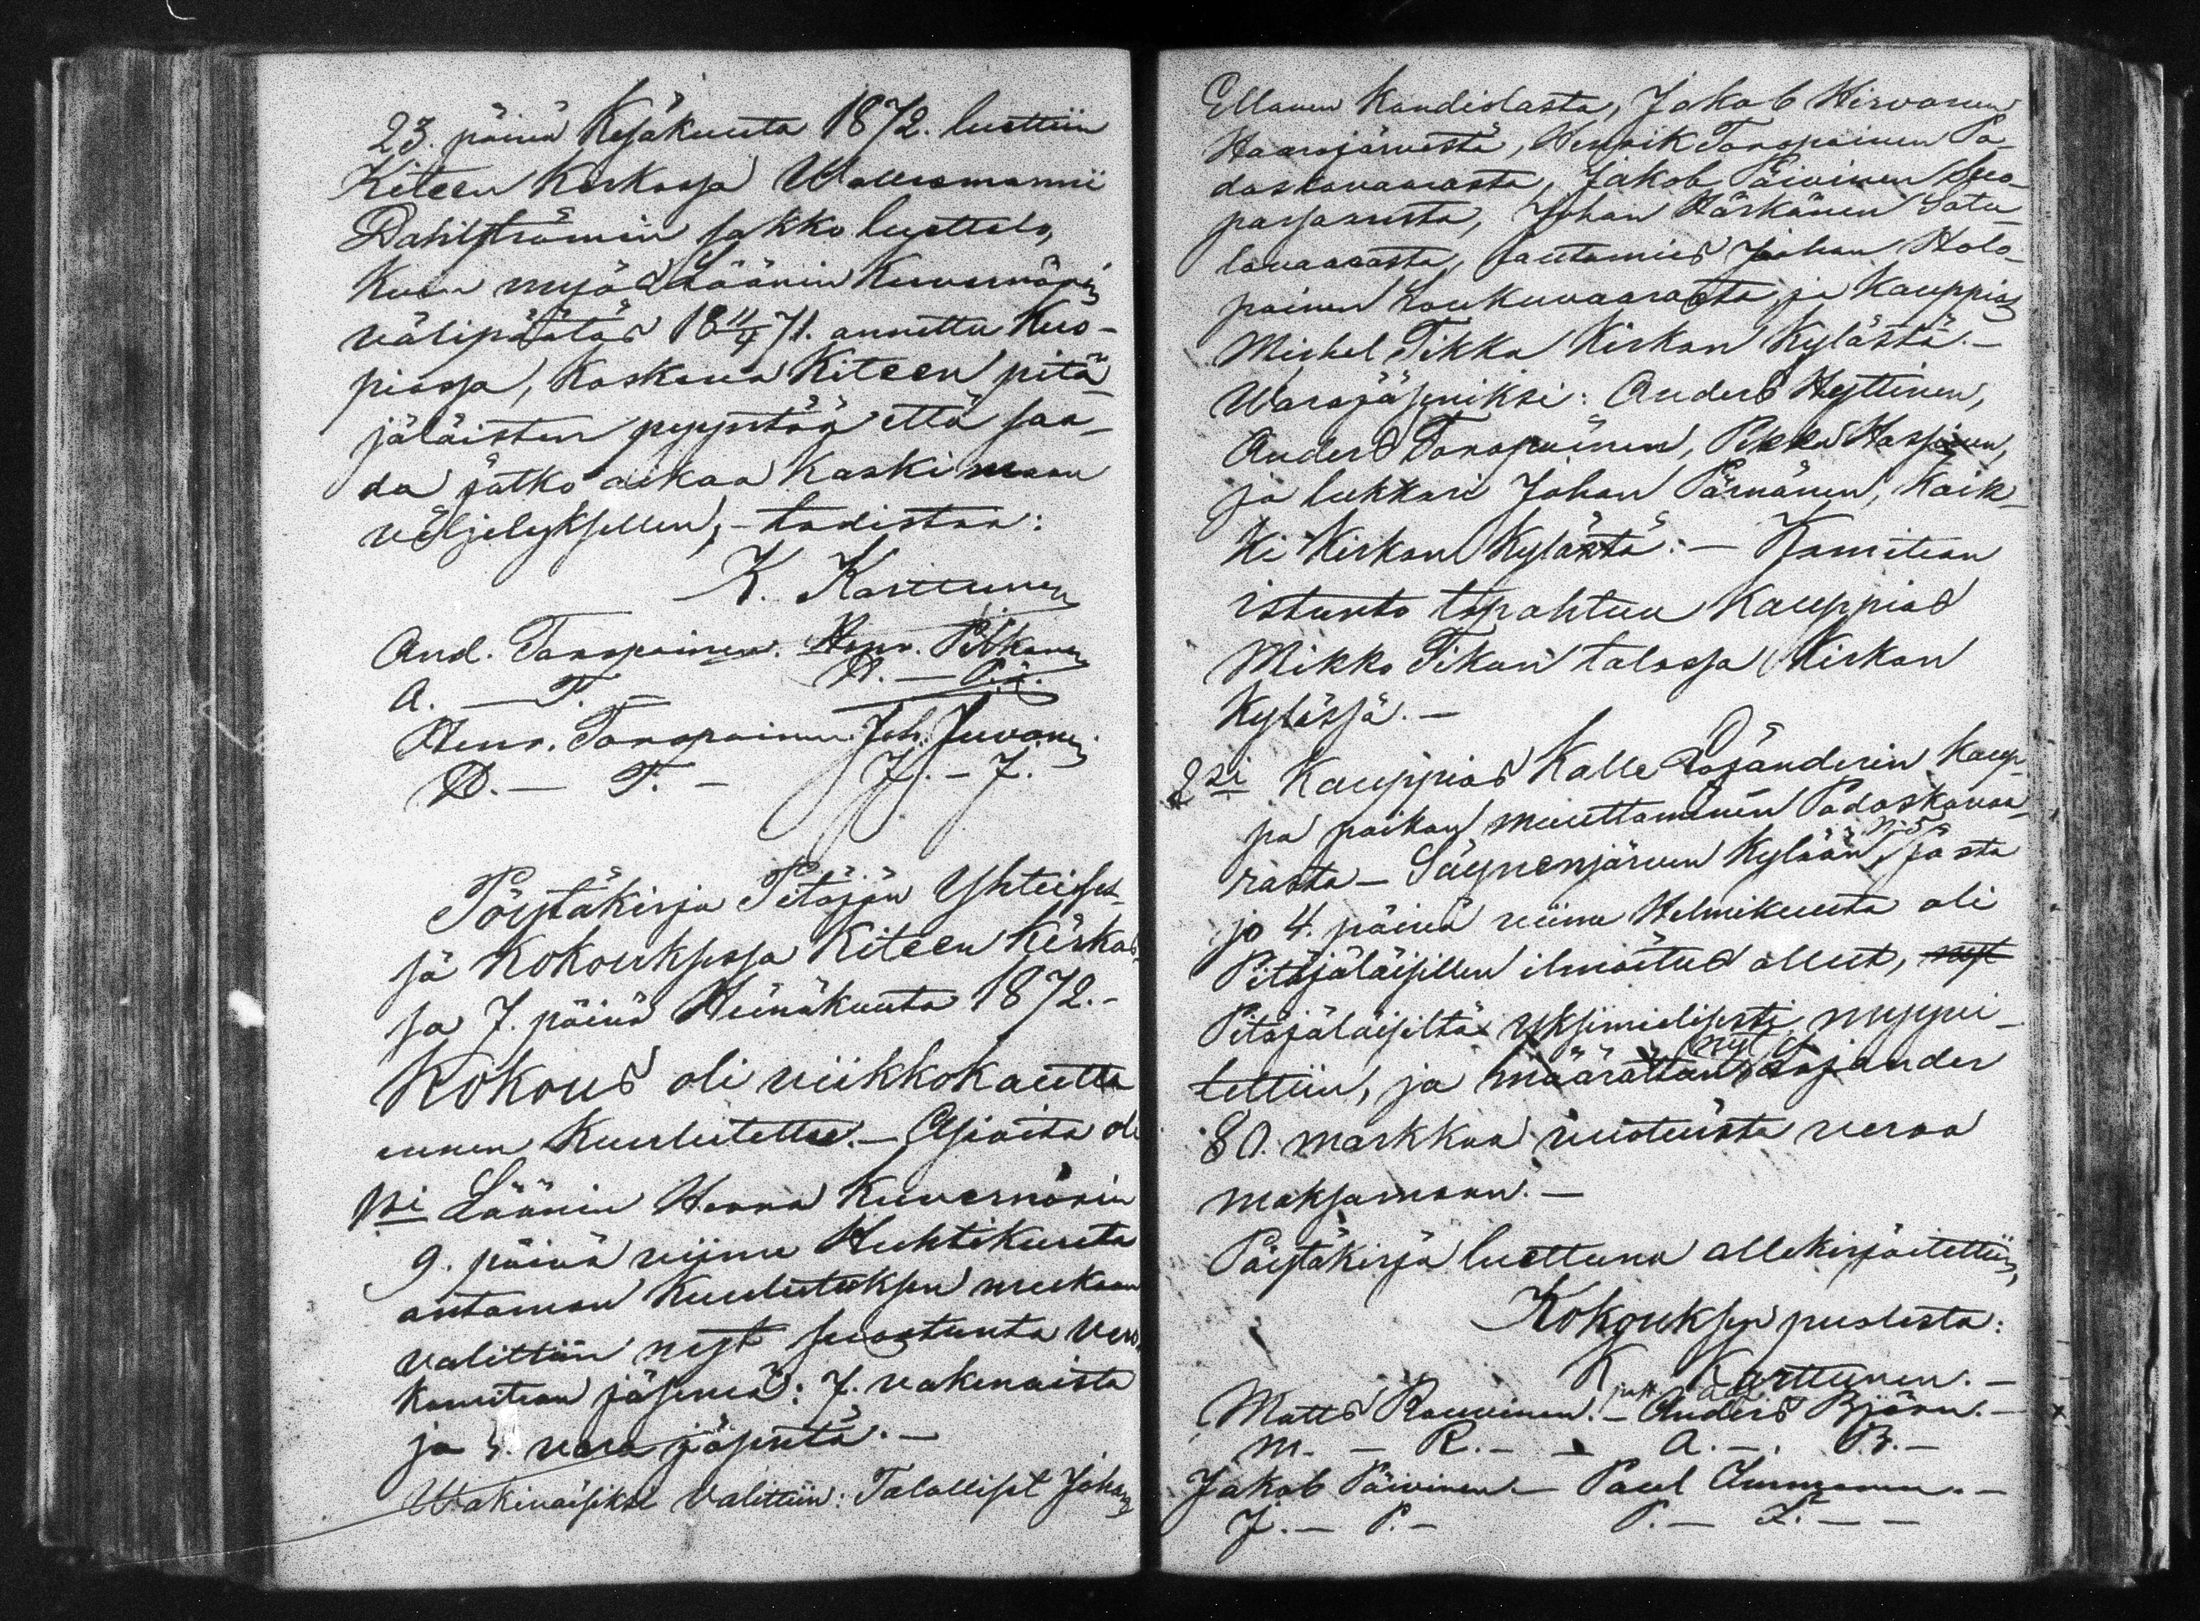 23. päivä Kesäkuuta 1872. luettiin
Kiteen Kirkossa Wallesmanni
Dahlströmin sakko luettelo,
Kuin myös Läänin Kuvernörin
välipäätös 18 11/4 71. annettu Kuo-
piossa, Koskeva Kiteen pitä-
jäläisten pyyntöä että saa-
da jatko aikaa Kaski maan
viljelyksellen, - todistaa:
K. Karttunen
And. Taropoinen. Henr. Pitkänen
A. — T. — H. — P.
Henr. Taropoinen. Joh. Juvonen
H. — T. — J. — J.
Pöytäkirja Pitäjän Yhteises-
sä Kokouksessa Kiteen Kirkos-
sa 7. päivä Heinäkuuta 1872. -
Kokous oli viikkokautta
ennen Kuulutettu. — Asioita oli
1ksi Läänin Herra Kuvernörin
9. päivä viime Huhtikuuta
antaman Kuulutuksen mukaan
valittiin nyt suostunta vero
Komitean jäseniä: 7. vakinaista
ja vara jäsentä. —
Wakinaisiksi valittiin: Talolliset Johan
Ellonen Kandislasta, Jakob Hirvonen
Haarajärvestä, Henrik Taropoinen Pa-
daskavaarasta, Jakob Päivinen Suo-
parsaaresta, Johan Härkänen Sata-
lavaarasta, lautamies Johan Holo-
painen Loukuvaarasta, ja Kauppias
Michel Tikka Kirkon Kylästä. —
Warajäseniksi: Anders Hyttinen,
Anders Taropainen, Pekka Hassinen,
ja lukkari Johan Pärnänen, Kaik-
ki Kirkon Kylästä. — Komitean
istunto tapahtuu Kauppias
Mikko Tikan talossa Kirkon
Kylässä. —
2ksi Kauppias Kalle Lojanderin Kaup-
pa paikan muuttaminen Padaskavaa-
rasta — Säynenjärven Kylään N:o 5, josta
jo 4. päivä viime Helmikuuta oli
Pitäjäläisillen ilmoitus ollut, nyt
Pitäjäläisiltä yksimielisesti myyvi-
tettiin, ja määrättiin nyt Lojander
80. markkaa vuotuista veroa
maksamaan. —
Pöytäkirja luettuna allekirjoitettiin,
Kokouksen puolesta:
K. Karttunen. —
Matts Rouvinen. — Anders Björn. —
M. — R. — — A. — B. —
Jakob Päivinen — Paul
J. — P. — P. — I. — —